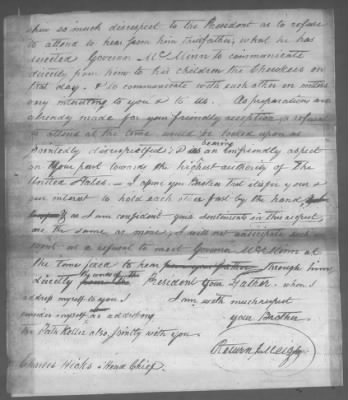 shew so much disrespect to the President as to refuse
to attend to hear from him their father, what he has
directed Governor McMinn to communicate
directly from him to his children the Cherokees on
that day. & to communicate with each other in matters
very interesting to you & to us. As preparations are
already made for your friendly reception a refusal
to attend at the time would be looked upon as
pointedly disrespectful & as bearing an unfriendly aspect
on your part towards the highest authority of the
United States. — I assure you Brother that it is for your &
our interest to hold each other fast by the hand,
& as I am confident your sentiments in this respect
are the same as mine, I will not anticipate such
event as a refusal to meet Governor McMinn at
the time fixed to hear from your father through him
directly the words of the President your Father. when I
address myself to you I I am with much respect
consider myself as addressing your Brother
the Path Killer also, jointly with you.
Return J. Meigs
Charles Hicks second Chief.